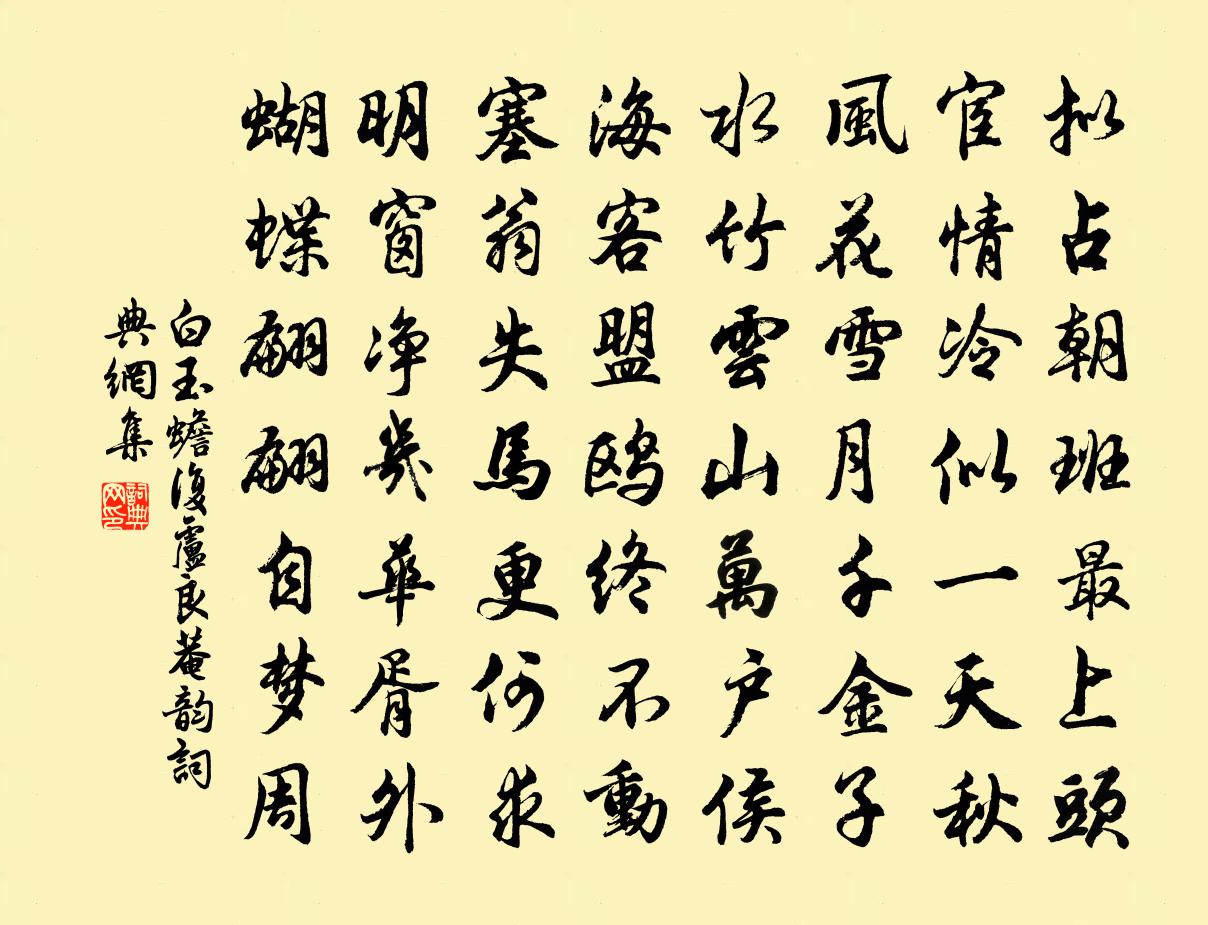 拟占朝班最上頭
宦情冷似一天秋
風花雪月千金子
水竹雲山萬户侯
海客盟鸥終不動
塞翁失馬更何求
明窗净幾華胥外
蝴蝶翩翩自梦周
白玉蟾復盧良菴韵詞
典網集
詞典网印